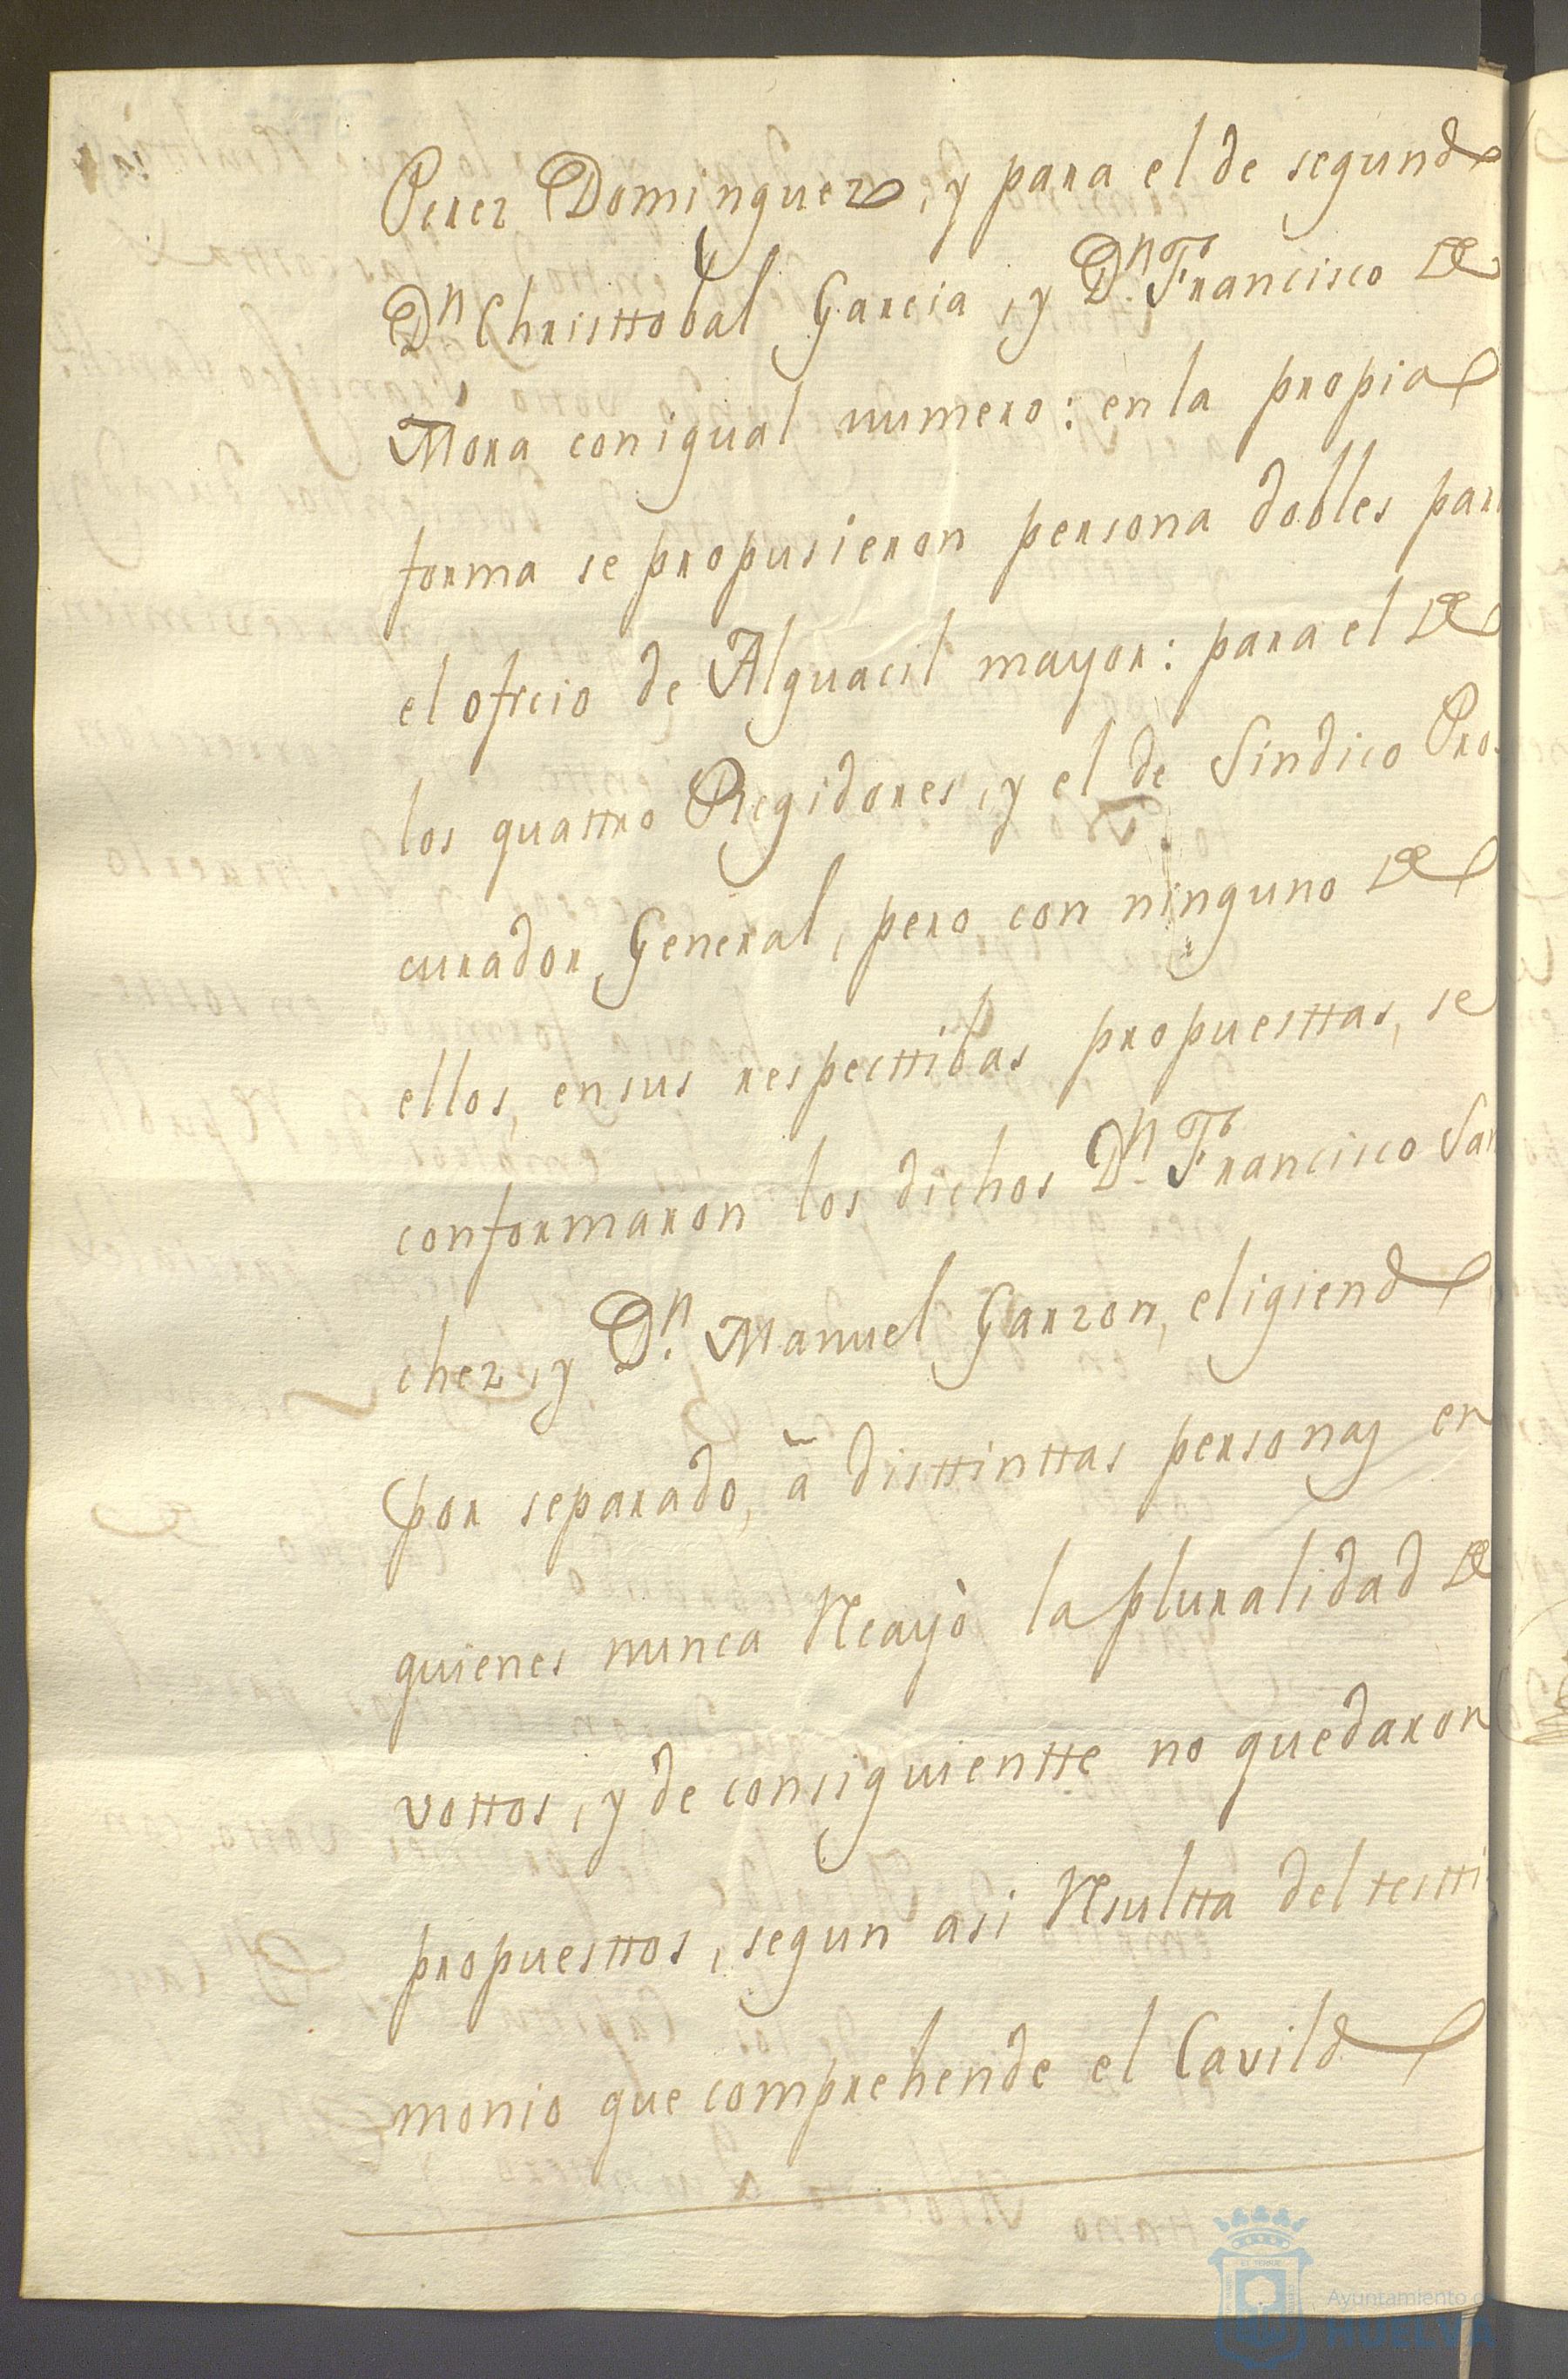 Perez Dominguez, y para el de segundo
Dn Christtobal Garcia, y Dn. Francisco de
Mora con igual numero: en la propia
forma se propusieron persona dobles para
el oficio de Alguacil mayor: para el de
los quattro Regidores, y el de Sindico Pro-
curador General, pero con ninguno de
ellos, en sus respecttibas propuesttas, se
conformaron los dichos Dn. Francisco San
chez, y Dn. Manuel Garzon, eligiendo
por separado, â disttinttas personas en
quienes nunca Recayò la pluralidad de
vottos, y de consiguientte no quedaron
propuesttos, segun asi Resultta del testti
monio que comprehende el Cavildo
Ayuntamiento de
HUELVA